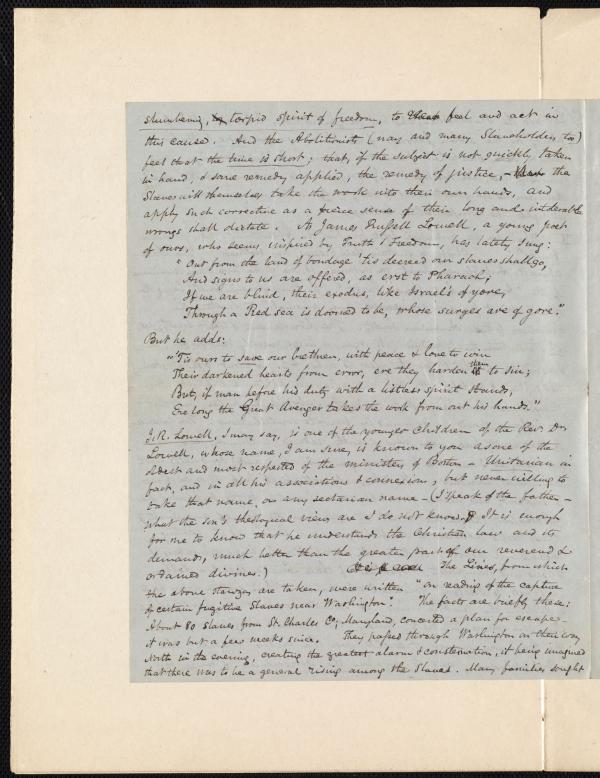 slumbering, torpid spirit of freedom, to feel and act in
this cause. And the Abolitionists (nay and many Slaveholders too)
feel that the time is short; that, if the subject is not quickly taken
in hand, & some remedy applied, the remedy of justice, – the
Slaves will themselves take the work into their own hands, and
apply such corrective as a fierce sense of their long and intolerable
wrongs shall dictate. As James Russell Lowell, a young poet
of ours, who seems inspired by Truth & Freedom, has lately sung:
"Out from the land of bondage 'tis decreed our slaves shall go,
And signs to us are offered, as erst to Pharaoh;
If we are blind, their exodus, like Israel's of yore,
Through a Red sea is doomed to be, whose surges are of gore."
But he adds:
"'Tis ours to save our brethren, with peace & love to win
Their darkened hearts from error, ere they harden them to sin;
But, if man before his duty with a listless spirit stands,
Ere long the Great Avenger takes the work from out his hands."
J. R. Lowell, I may say, is one of the younger children of the Rev. Dr.
Lowell, whose name, I am sure, is known to you as one of the
oldest and most respected of the ministers of Boston – Unitarian in
fact, and in all his associations & connexions, but never willing to
take that name, or any sectarian name – (I speak of the father –
what the son's theological views are I do not know. It is enough
for me to know that he understands the Christian law and its
demands, much better than the greater part of our reverend &
ordained divines.) The Lines, from which
the above stanzas are taken, were written "on reading of the capture
of certain fugitive Slaves near Washington." The facts are briefly these:
About 80 slaves from St. Charles Co; Maryland, concerted a plan for escape –
it was but a few weeks since. They passed through Washington on their way
North in the evening, creating the greatest alarm & consternation, it being imagined
that there was to be a general rising among the Slaves. Many families sought